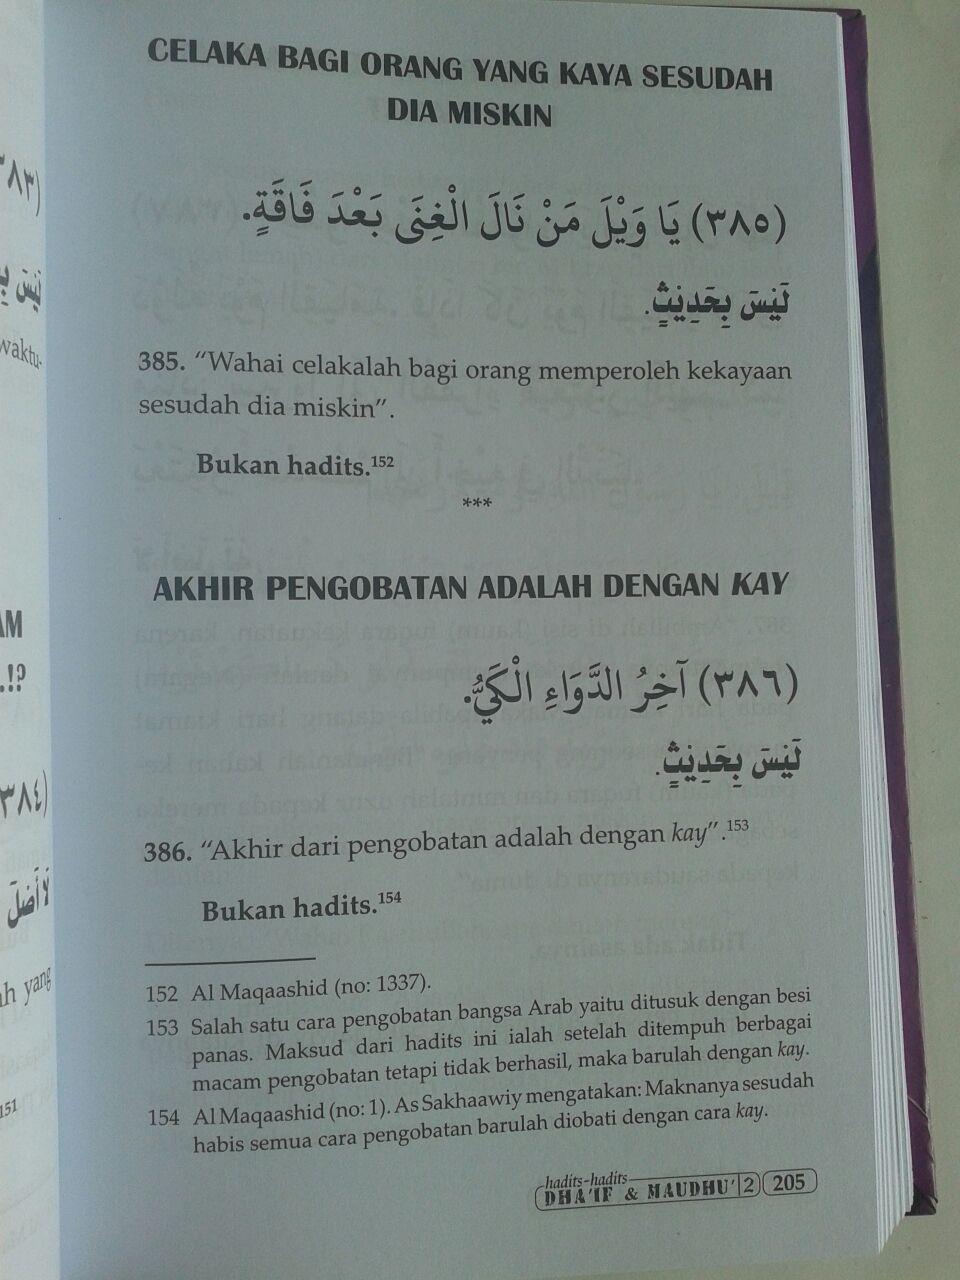 CELAKA BAGI ORANG YANG KAYA SESUDAH
DIA MISKIN
(٣٨٥) يَا وَيْلَ مَنْ نَالَ الْغِنَى بَعْدَ فَاقَةٍ.
لَيْسَ بِحَدِيْثٍ.
385. “Wahai celakalah bagi orang memperoleh kekayaan
sesudah dia miskin”.
Bukan hadits.152
***
AKHIR PENGOBATAN ADALAH DENGAN KAY
(٣٨٦) آخِرُ الدَّوَاءِ الْكَيُّ.
لَيْسَ بِحَدِيْثٍ.
386. “Akhir dari pengobatan adalah dengan kay”.153
Bukan hadits.154
152 Al Maqaashid (no: 1337).
153 Salah satu cara pengobatan bangsa Arab yaitu ditusuk dengan besi
panas. Maksud dari hadits ini ialah setelah ditempuh berbagai
macam pengobatan tetapi tidak berhasil, maka barulah dengan kay.
154 Al Maqaashid (no: 1). As Sakhaawiy mengatakan: Maknanya sesudah
habis semua cara pengobatan barulah diobati dengan cara kay.
hadits-hadits
DHA'IF & MAUDHU' 2 205